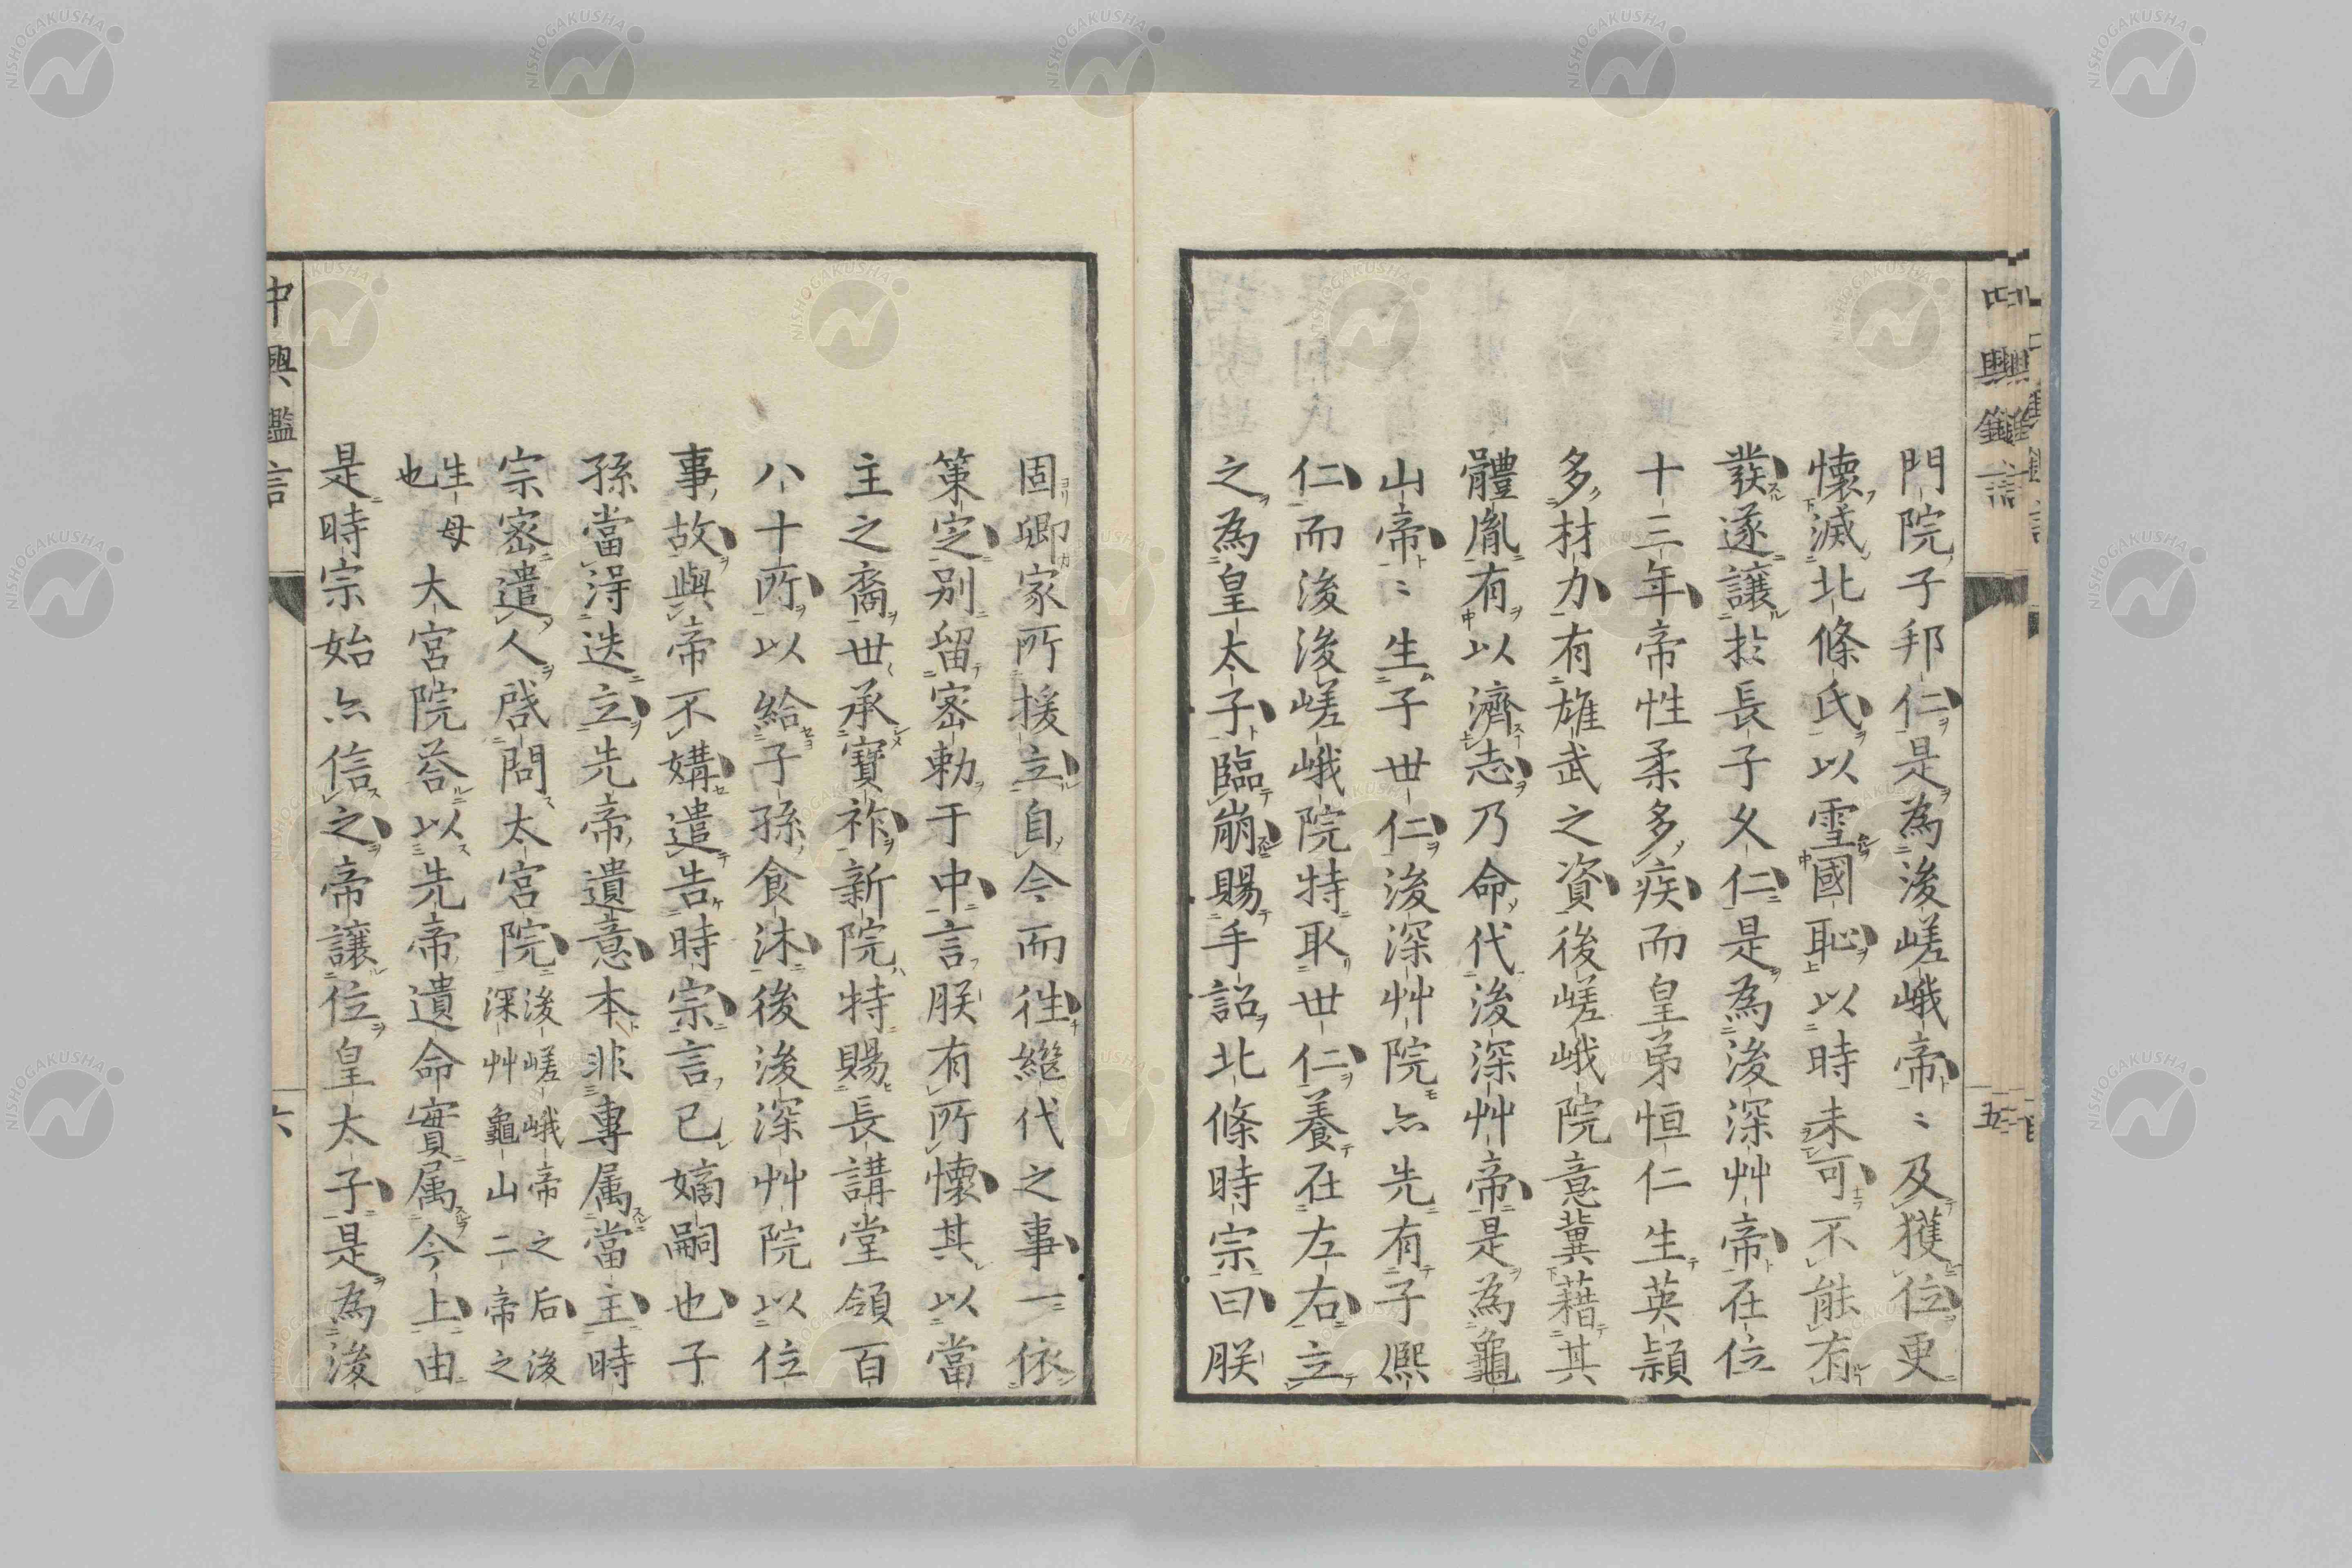 門院子邦仁是為後嵯峨帝〻及獲位更
懷滅北條氏以雪國恥以時未可不能有
發遂讓於長子久仁是為後深艸帝在位
十三年帝性柔多疾而皇弟恒仁生英頴
多材力有雄武之資後嵯峨院意冀藉其
體胤有以濟志乃命代後深艸帝是為龜
山帝〻生子世仁後深艸院亦先有子熈
仁而後後嵯峨院特取世仁養在左右立
之為皇太子臨崩賜手詔北條時宗曰朕
固卿家所援立自今而徃繼代之事一依
䇿定別留密勅于中言朕有所懷其以當
主之裔世承寶祚新院特賜長講堂領百
八十所以給子孫食沐後後深艸院以位
事故與帝不媾遣告時宗言己嫡嗣也子
孫當淂迭立先帝遺意本非專属當主時
宗密遣人啓問太宮院後嵯峨帝之后後深艸龜山二帝之
生母也大宮院荅以先帝遺命實属今上由
是時宗始亦信之帝讓位皇太子是為後
中興鑑言
六
五